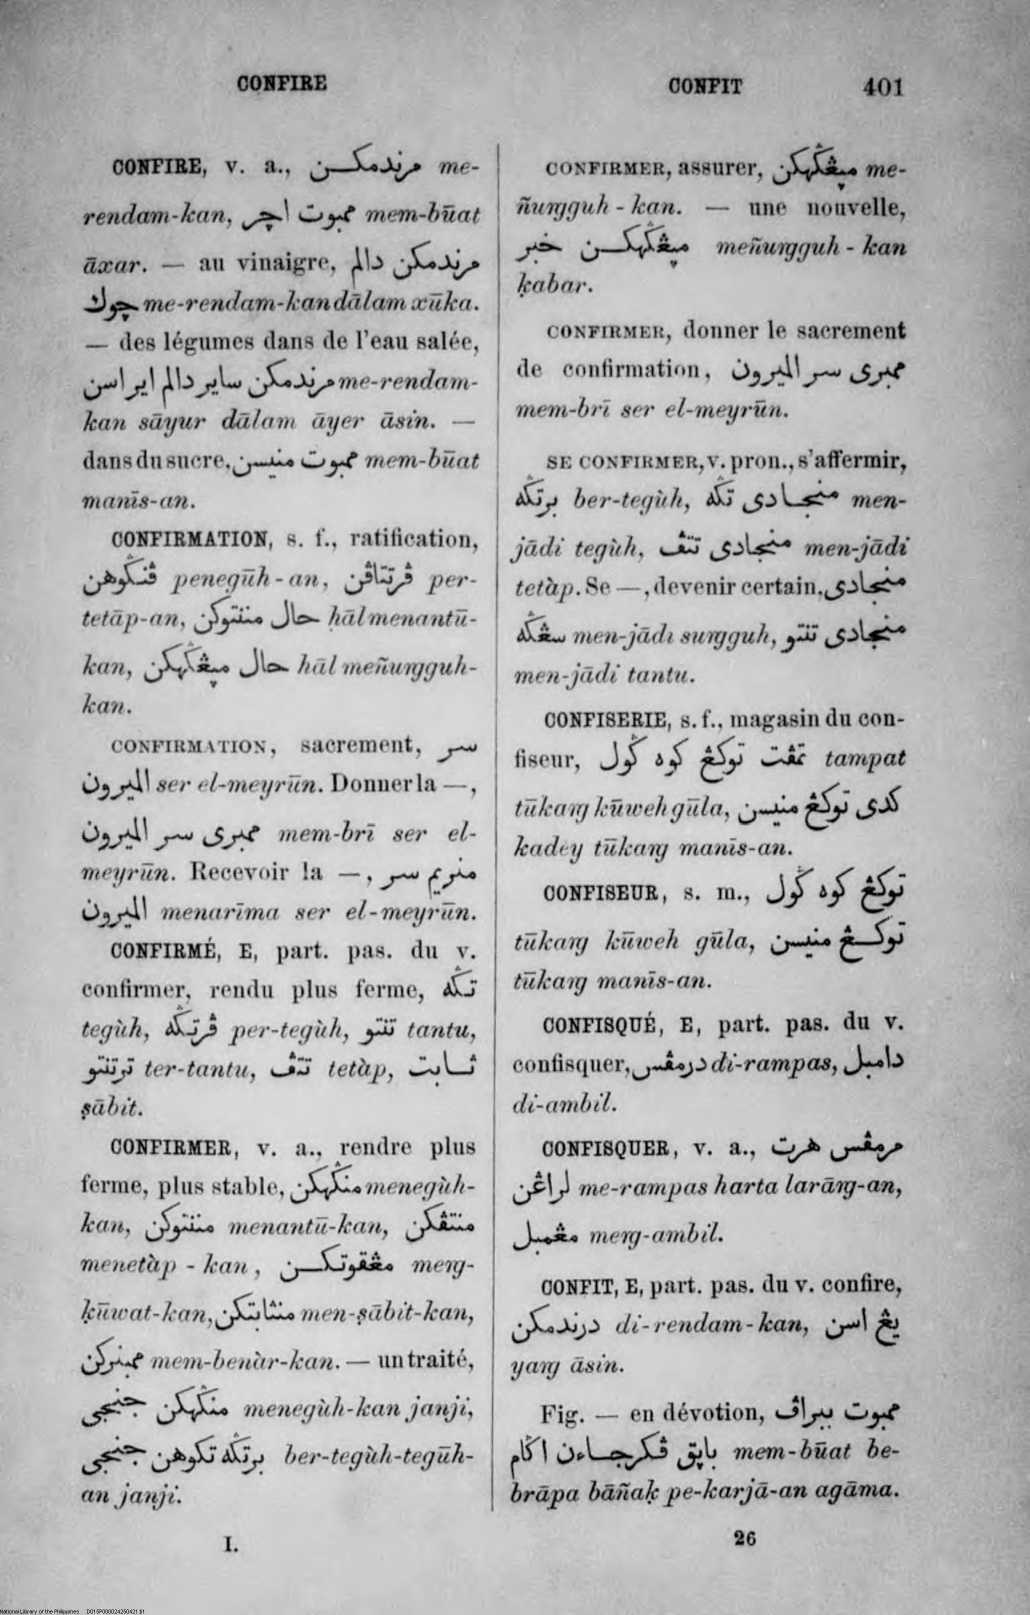 CONFIRE
CONFIT 401
CONFIRE, v. a., مرندمکــن me-
rendam-kan, ممبوت اچر mem-būat
āxar. — au vinaigre, مرندمکن دالم
چوك me-rendam-kan dālam xūka.
— des légumes dans de l'eau salée,
مرندمکن ساير دالم اير اسن me-rendam-
kan sāyur dālam āyer āsin. —
dans du sucre, ممبوت منيسن mem-būat
manīs-an.
CONFIRMATION, s. f., ratification,
ڤنݢوهن penegūh-an, ڤرتتاڤن per-
tetāp-an, حال مننتوکن ḥāl menantū-
kan, حال مڽڠݢهکن ḥāl meñuꞑgguh-
kan.
CONFIRMATION, sacrement, سر
الميرون ser el-meyrūn. Donner la —,
ممبری سر الميرون mem-brī ser el-
meyrūn. Recevoir la —, منريم سر
الميرون menarīma ser el-meyrūn.
CONFIRMÉ, E, part. pas. du v.
confirmer, rendu plus ferme, تݢه
tegùh, ڤرتݢه per-tegùh, تنتو tantu,
ترتنتو ter-tantu, تتڤ tetàp, ثــابت
ṣābit.
CONFIRMER, v. a., rendre plus
ferme, plus stable, منݢهکن menegùh-
kan, مننتوکن menantū-kan, منتڤکن
menetàp-kan, مڠقوتکــن meꞑg-
ḳūwat-kan, منثابتکن men-ṣābit-kan,
ممبنرکن mem-benàr-kan. — un traité,
منݢهکن جنجی menegùh-kan janji,
برتݢه تکوهن جنجی ber-tegùh-tegūh-
an janji.
CONFIRMER, assurer, مڽڠݢهکن me-
ñuꞑgguh-kan. — une nouvelle,
مڽڠݢهکــن خبر meñuꞑgguh-kan
ḳabar.
CONFIRMER, donner le sacrement
de confirmation, ممبری سر الميرون
mem-brī ser el-meyrūn.
SE CONFIRMER, v. pron., s'affermir,
برتݢه ber-tegùh, منجــادی تݢه men-
jādi tegùh, منجادی تتڤ men-jādi
tetàp. Se —, devenir certain, منجادی
سڠݢه men-jādi suꞑgguh, منجادی تنتو
men-jādi tantu.
CONFISERIE, s. f., magasin du con-
fiseur, تمڤت توکڠ کوه ݢول tampat
tūkaꞑg kūweh gūla, کدی توکڠ منيسن
kadey tūkaꞑg manīs-an.
CONFISEUR, s. m., توکڠ کوه ݢول
tūkaꞑg kūweh gūla, توکــڠ منيسن
tūkaꞑg manīs-an.
CONFISQUÉ, E, part. pas. du v.
confisquer, درمڤس di-rampas, دامبل
di-ambil.
CONFISQUER, v. a., مرمڤس هرت
لراڠن me-rampas harta larāꞑg-an,
مڠمبل meꞑg-ambil.
CONFIT, E, part. pas. du v. confire,
درندمکن di-rendam-kan, يڠ اسن
yaꞑg āsin.
Fig. — en dévotion, ممبوت ببراڤ
باڽق ڤکرجــاءن اݢام mem-būat be-
brāpa bāñaḳ pe-karjā-an agāma.
I.
26
National Library of the Philippines